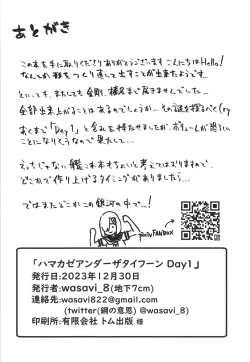 あとがき
この本を手に取りくださりありがとうございます こんにちはHello!
なんとか形をつくり直して出すことが出来たようです…
といっても、またしても金剛、榛名まで届きませんでした…
全部出来上がることはあるのでしょうか…その謎を探るべく(ry
あくまで「Day1」と含みを持たせましたが、ボリュームが恐ろしい
ことになりそうなので果たして…
えっちじゃない艦これ本もちょいと考えてはおりますので
どこかで作り上げるタイミングがありましたら…
ではまたどこかこの銀河の中で…!
pixivFANBOX
「ハマカゼアンダーザタイフーン Day1」
発行日:2023年12月30日
発行者:wasavi_8(地下7cm)
連絡先:wasavi822@gmail.com
(twitter(鋼の意思) @wasavi_8)
印刷所:有限会社 トム出版 様